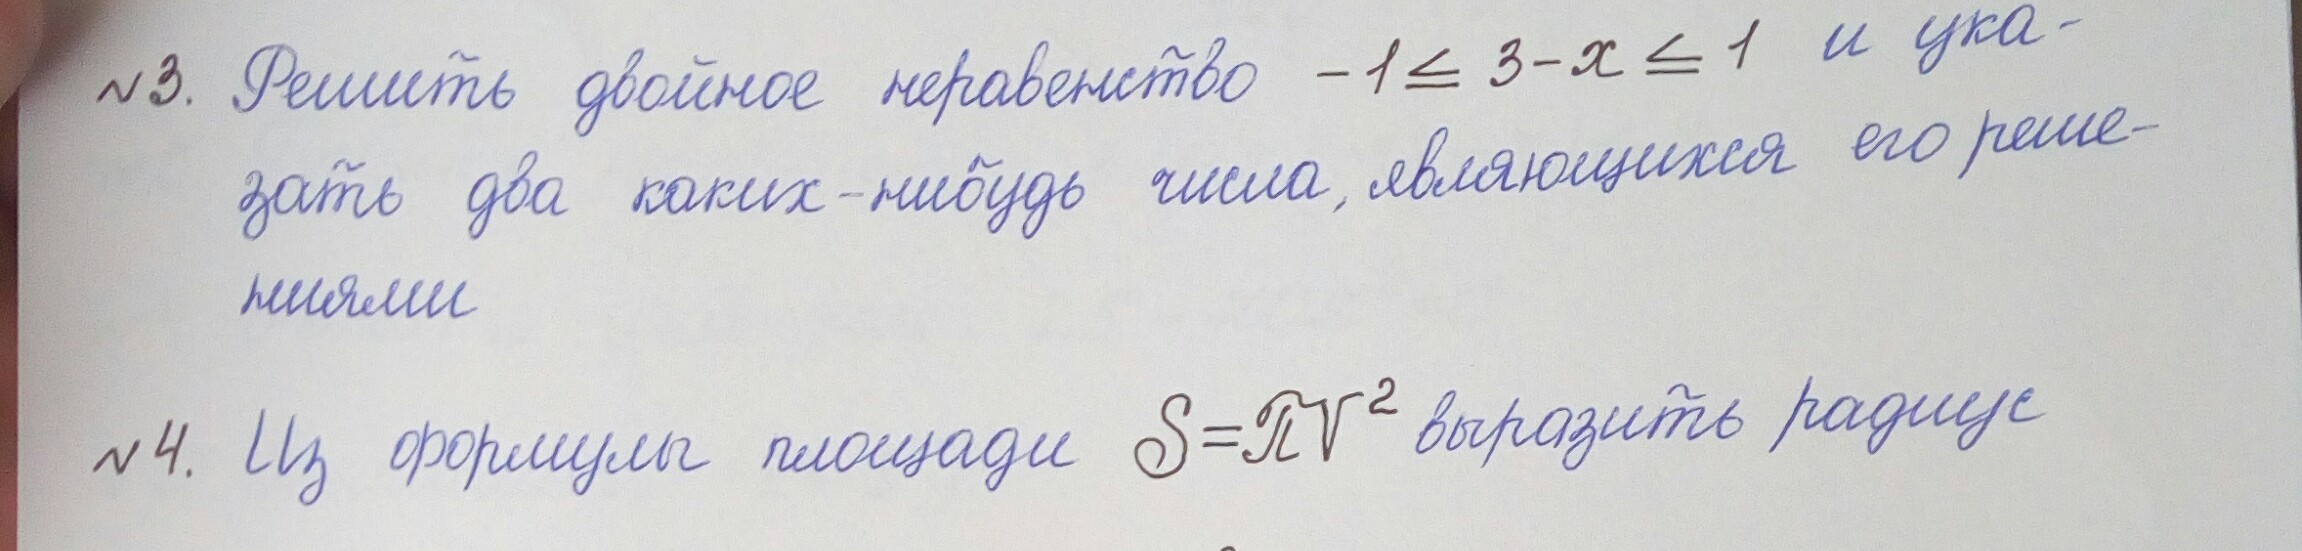 №3. Решить двойное неравенство -1 ≤ 3-x ≤ 1 и ука-
зать два каких-нибудь числа, являющихся его реше-
ниями
№4. Из формулы площади S=πr² выразить радиус